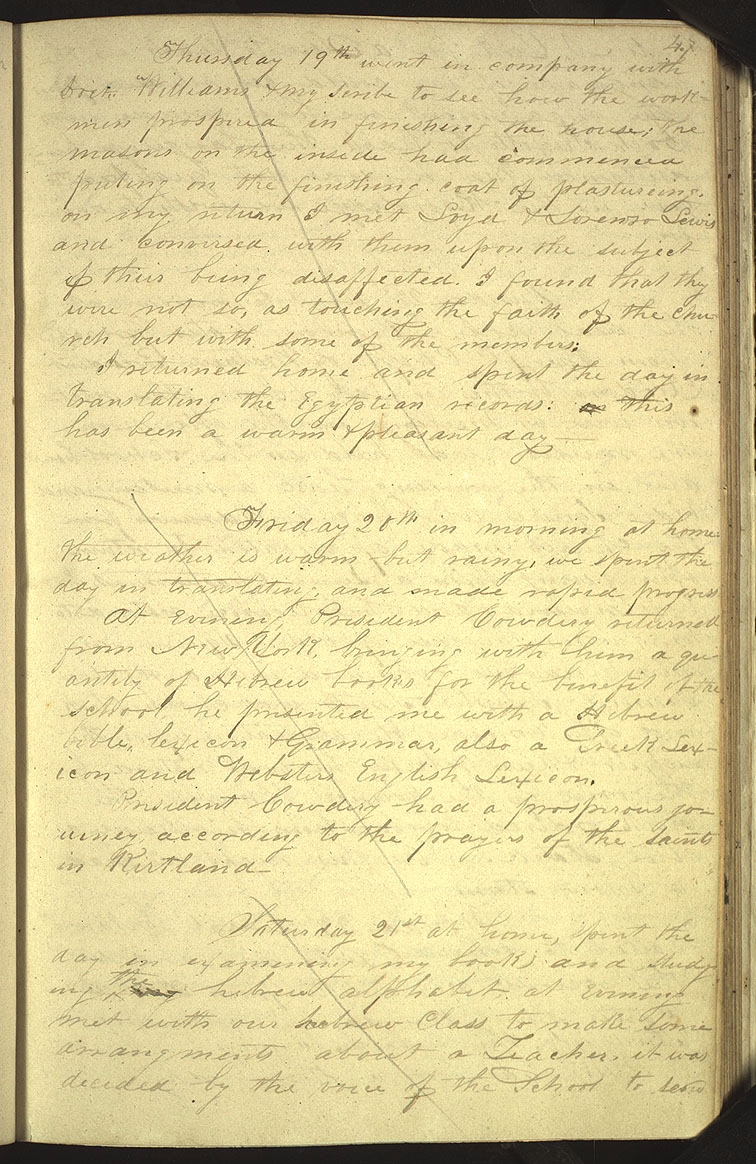 47
Thursday 19th went in company with
doct. Williams & my scribe to see how the work-
men prospired in finishing the house; the
masons on the inside had commenced
puting on the finishing coat of plastureing.
on my return I met Loyd & Lorenzo Lewis
and conversed with them upon the subject
of their being disaffected. I found that they
were not so, as touching the faith of the chu-
rch but with some of the members;
I returned home and spent the day in
translating the Egyptian records: this
has been a warm & pleasant day—
Friday 20th in morning at home:
the weather is warm but rainy, we spent the
day in translating, and made rapid progress
At Evening, President Cowdery returned
from New York, bringing with him a qu-
antity of Hebrew books for the benefit of the
school, he presented me with a Hebrew
bible, lexicon & Grammar, also a Greek Lex-
icon and Websters English Lexicon.
President Cowdery had a prosperous jo-
urney according to the prayers of the saints
in Kirtland—
Saturday 21st at home, spent the
day in examining my books and study-
ing the hebrew alphabet at evening
met with our hebrew Class to make some
arrangments about a Teacher. it was
decided by the voice of the School to send